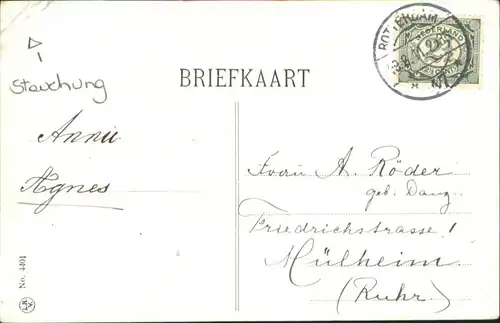 Stauchung
BRIEFKAART
ROTTERDAM
NEDERLAND
2½
Annie
Agnes
Frau A. Röder
geb. Danz.
Friedrichstrasse!
Mülheim
(Ruhr)
No. 4401